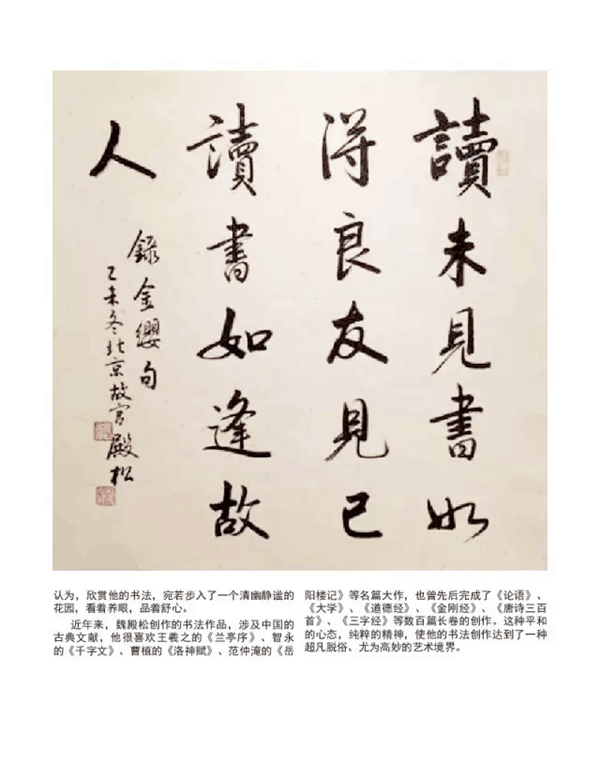 讀未見書如
得良友見已
讀書如逢故
人
錄金纓句
乙未冬北京故宫殿松
认为，欣赏他的书法，宛若步入了一个清幽静谧的
花园，看着养眼，品着舒心。
近年来，魏殿松创作的书法作品，涉及中国的
古典文献，他很喜欢王羲之的《兰亭序》、智永
的《千字文》、曹植的《洛神赋》、范仲淹的《岳
阳楼记》等名篇大作，也曾先后完成了《论语》、
《大学》、《道德经》、《金刚经》、《唐诗三百
首》、《三字经》等数百篇长卷的创作。这种平和
的心态，纯粹的精神，使他的书法创作达到了一种
超凡脱俗、尤为高妙的艺术境界。